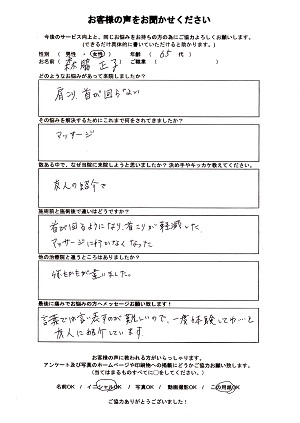 お客様の声をお聞かせください
今後のサービス向上と、同じお悩みをお持ちの方の為にご協力よろしくお願いします。
(できるだけ具体的に書いていただけると助かります。)
性別 ( 男性 ・ 女性 ) 年齢 ( 65 代 )
お名前 ( 森脇 正子 ) ご職業 ( )
どのようなお悩みがあって来院しましたか?
肩こり、首が回らない
その悩みを解決するためにこれまで何をされてきましたか?
マッサージ
数ある中で、なぜ当院に来院しようと思いましたか? 決め手やキッカケ教えてください。
友人の紹介で
施術前と施術後で違いはどうですか?
首が回るようになり、首こりが軽減した
マッサージに行かなくなった
他の治療院と違うところはありましたか?
何もかもが違いました。
最後に痛みでお悩みの方へメッセージお願い致します!
言葉では言い表すのが難しいので、一度体験してみて!と
友人に紹介しています。
お客様の声に救われる方がいらっしゃります。
アンケート及び写真のホームページや印刷物への掲載にどうかご協力お願い致します。
(当てはまるものすべてに〇をしてください。)
名前OK / イニシャルOK / 写真OK / 動画撮影OK / この用紙OK
ご協力ありがとうございました!